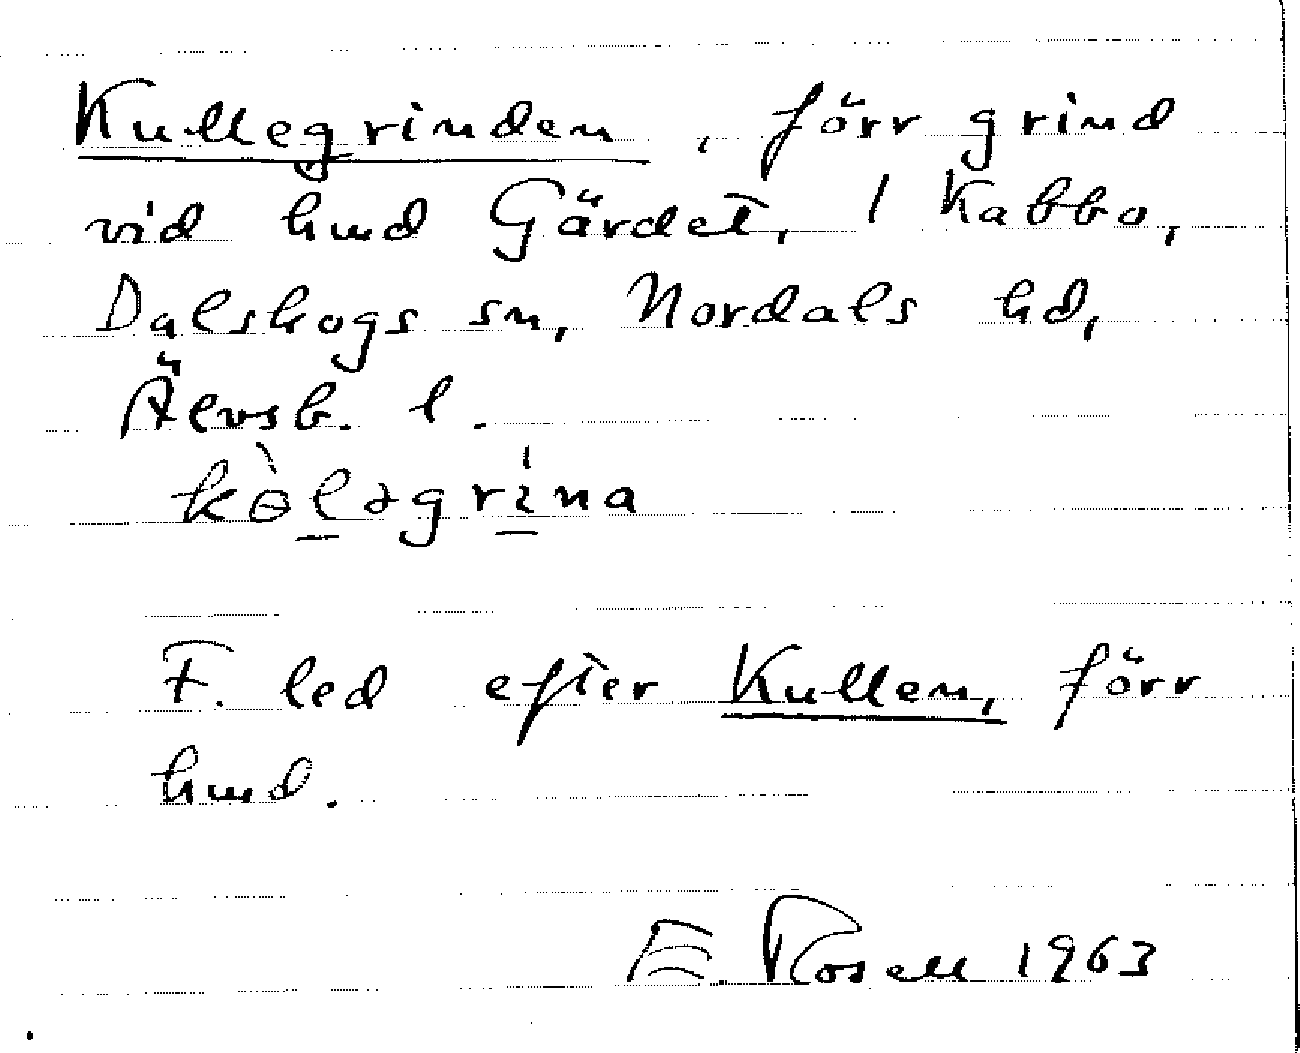 Kullegrinden, förr grind
vid hmd Gärdet, 1 Kabbo,
Dalskogs sn, Nordals hd,
Älvsb. l.
kɵ̀ləgrína
F. led efter Kullen, förr
hmd.
E. Rosell 1963